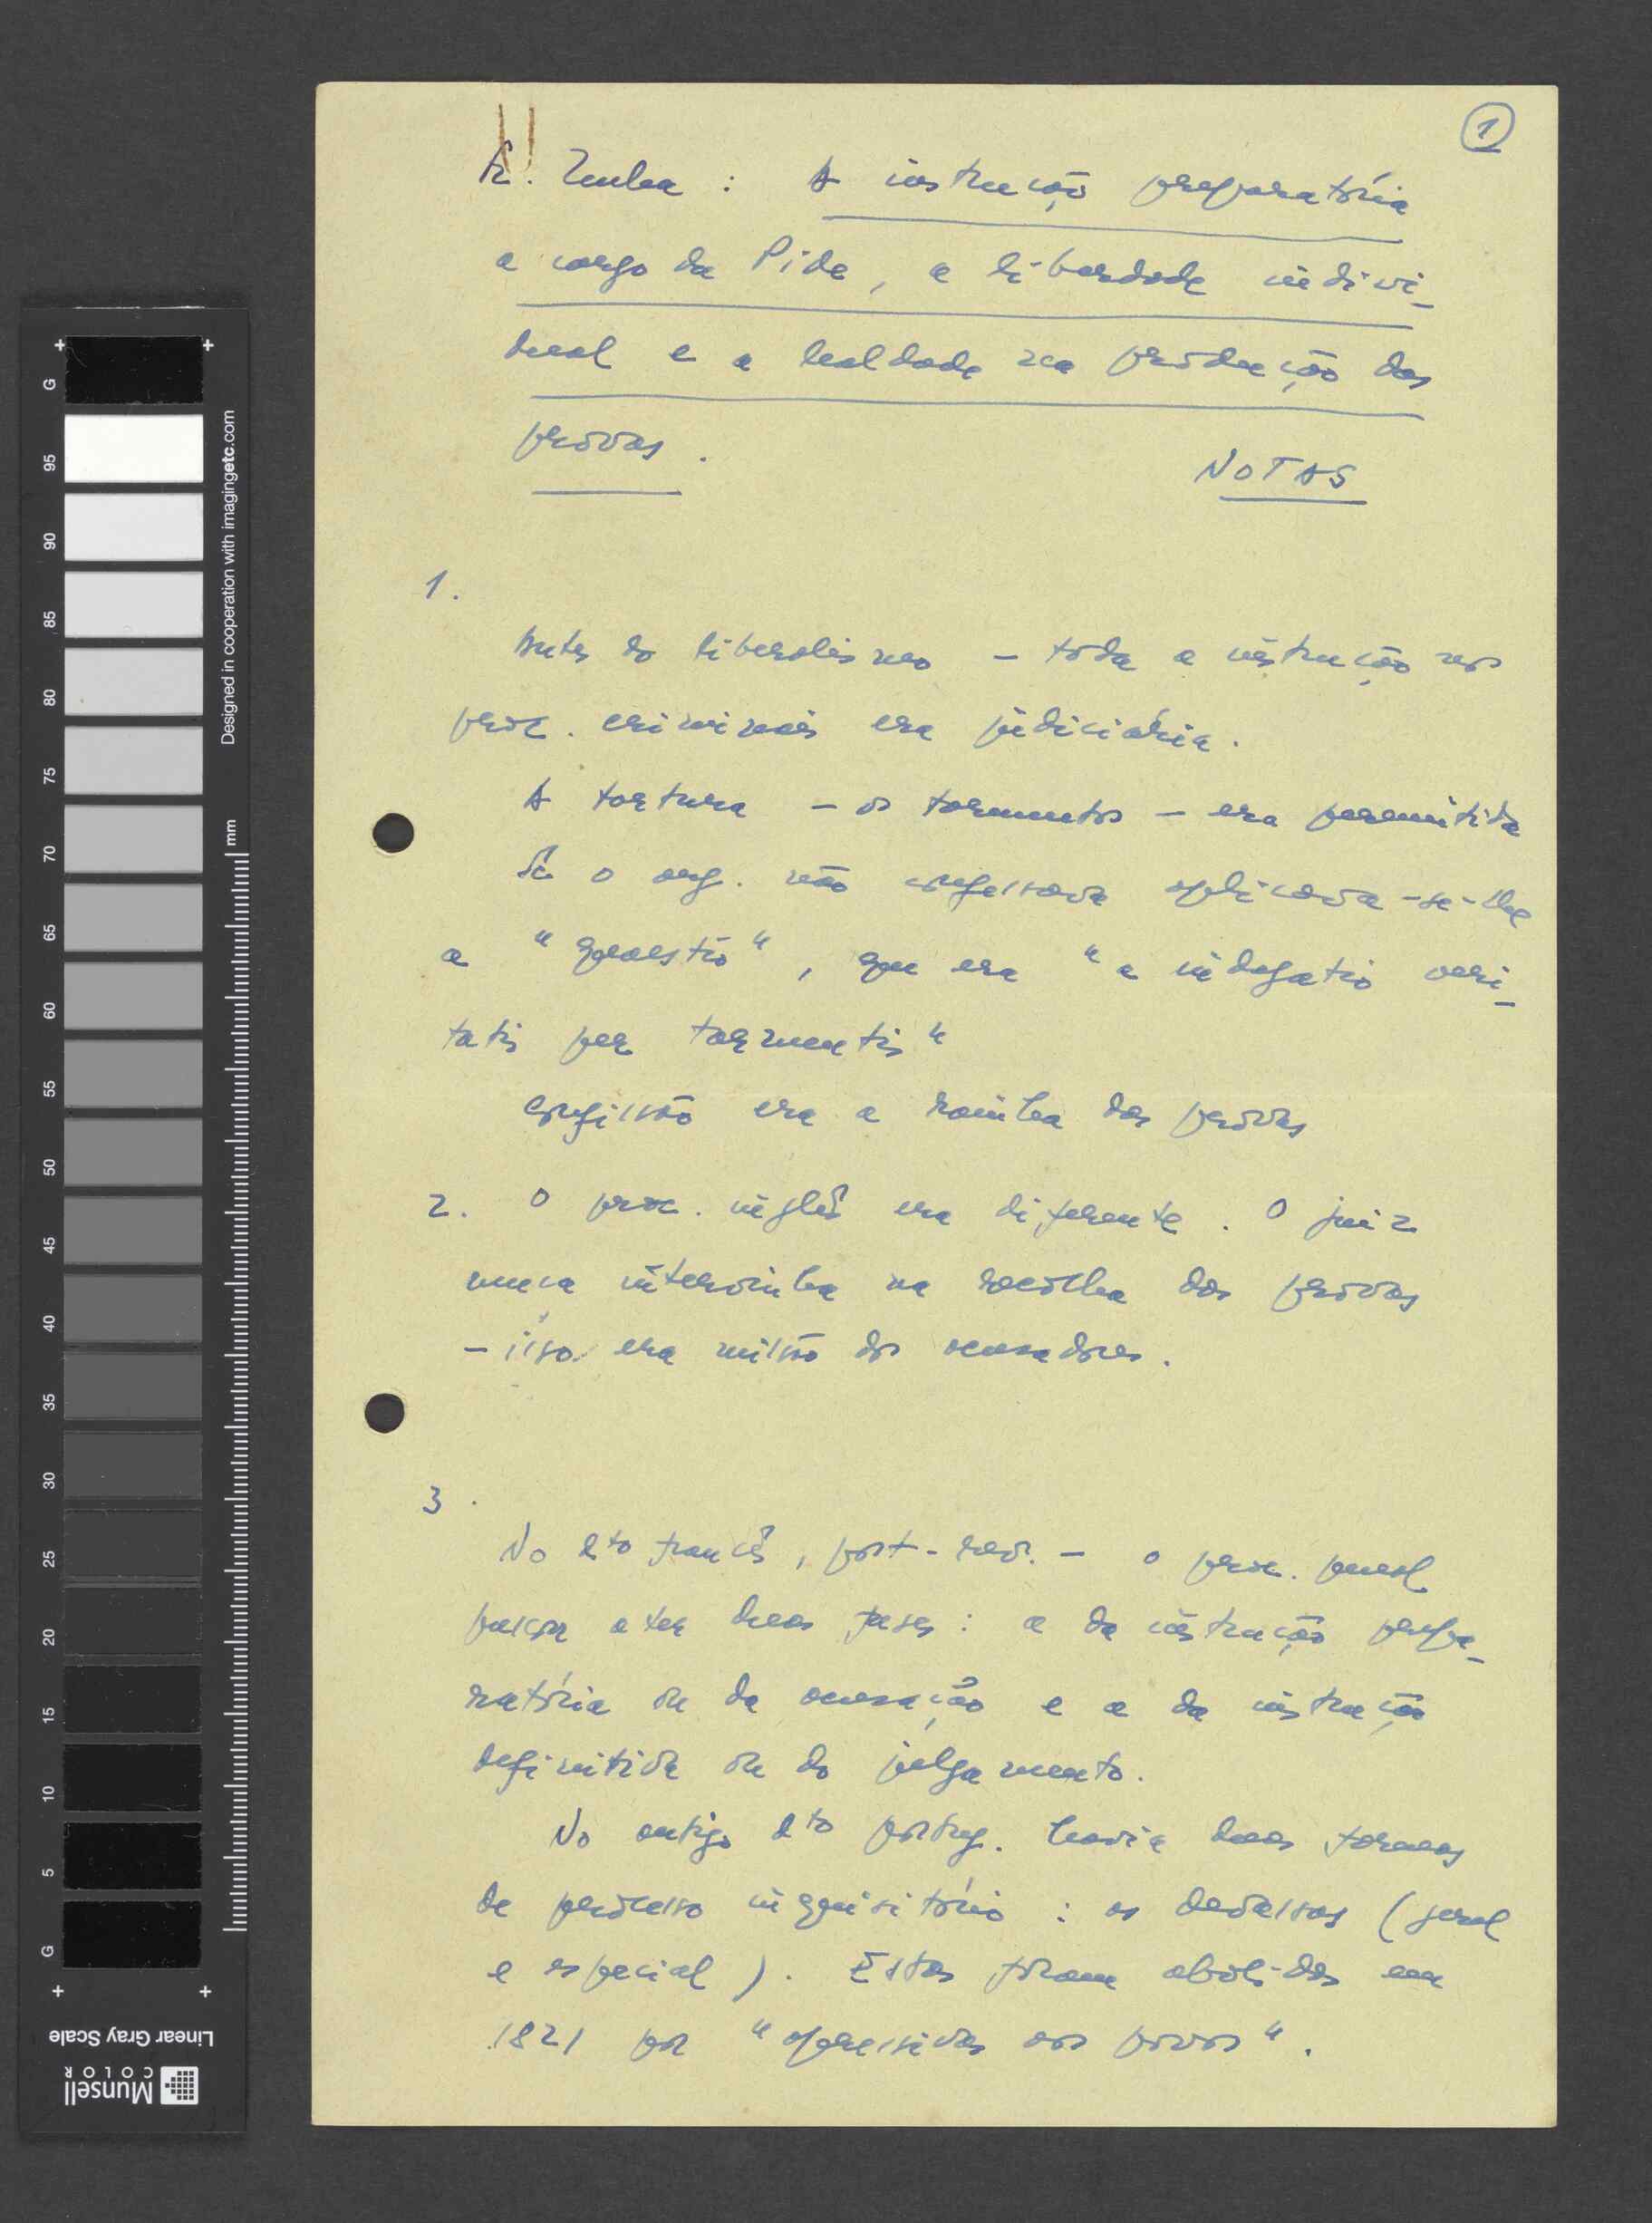 1
F. Zenha : A instrução preparatória
a cargo da Pide, a liberdade indivi-
dual e a lealdade na produção das
provas.
NOTAS
1.
Antes do liberalismo – toda a instrução nos
proc. criminais era judiciária.
A tortura – os tormentos – era permitida
Se o arg. não confessava aplicava-se-lhe
a "quaestio", que era "a indagatio veri-
tatis per tormentis"
Confissão era a rainha das provas
2. O proc. inglês era diferente. O juiz
nunca intervinha na recolha das provas
– isso era missão dos acusadores.
3.
No dto francês, post-rev. – o proc. penal
passou a ter duas fases : a da instrução prepa-
ratória ou da acusação e a da instrução
definitiva ou do julgamento.
No antigo dto portug. havia duas formas
de processo inquisitório : as devassas (geral
e especial). Estas foram abolidas em
1821 por "opressivas aos povos".
Designed in cooperation with imagingetc.com
mm
G
95
90
85
80
75
70
65
60
55
50
45
40
35
30
25
20
15
10
5
G
Linear Gray Scale
Munsell
COLOR